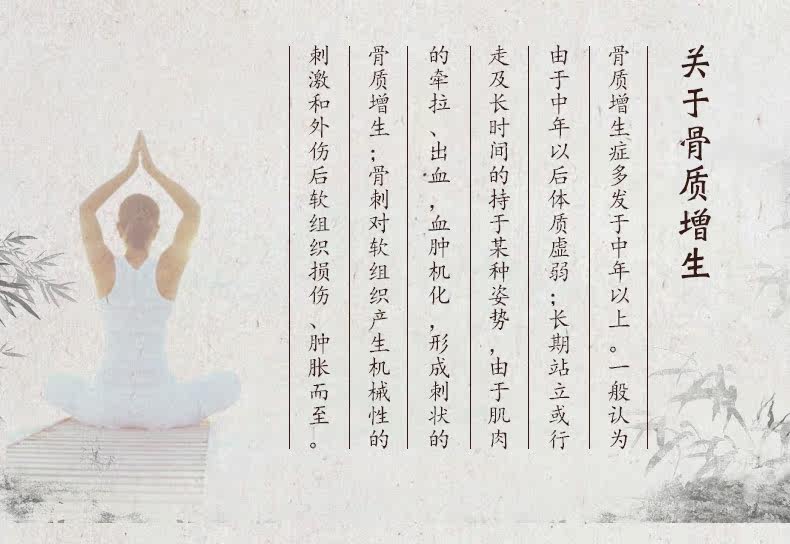 关于骨质增生
骨质增生症多发于中年以上。一般认为
由于中年以后体质虚弱；长期站立或行
走及长时间的持于某种姿势，由于肌肉
的牵拉、出血，血肿机化，形成刺状的
骨质增生；骨刺对软组织产生机械性的
刺激和外伤后软组织损伤、肿胀而至。